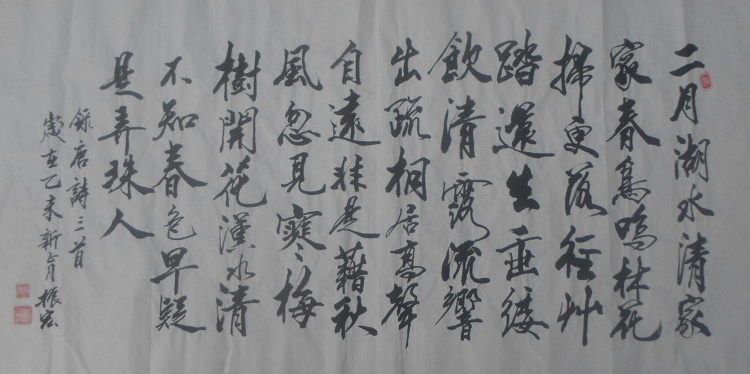 二月湖水清家
家春鳥鳴林花
掃更落徑艸
踏還生垂緌
飲清露流響
出疏桐居高聲
自遠非是藉秋
風忽見寒梅
樹開花漢水清
不知春色早疑
是弄珠人
錄唐詩三首
歲在乙未新月振